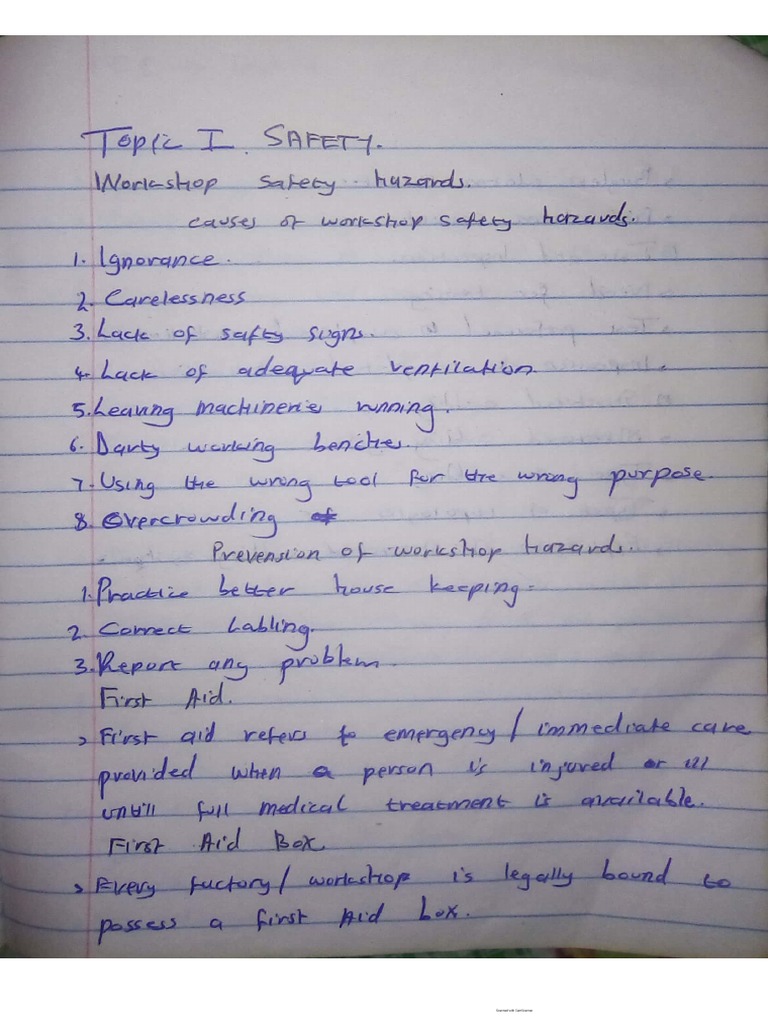 Topic I. SAFETY.
Workshop safety hazards.
causes of workshop safety hazards.
1. Ignorance.
2. Carelessness
3. Lack of safty signs.
4. Lack of adequate ventilation.
5. Leaving machineries running.
6. Darty working benches.
7. Using the wrong tool for the wrong purpose.
8. Overcrowding
Prevension of workshop hazards.
1. Practice better house keeping.
2. Correct Labling.
3. Report any problem.
First Aid.
> First aid refers to emergency/immediate care
provided when a person is injured or ill
untill full medical treatment is available.
First Aid Box.
> Every factory/workshop is legally bound to
possess a first Aid box.